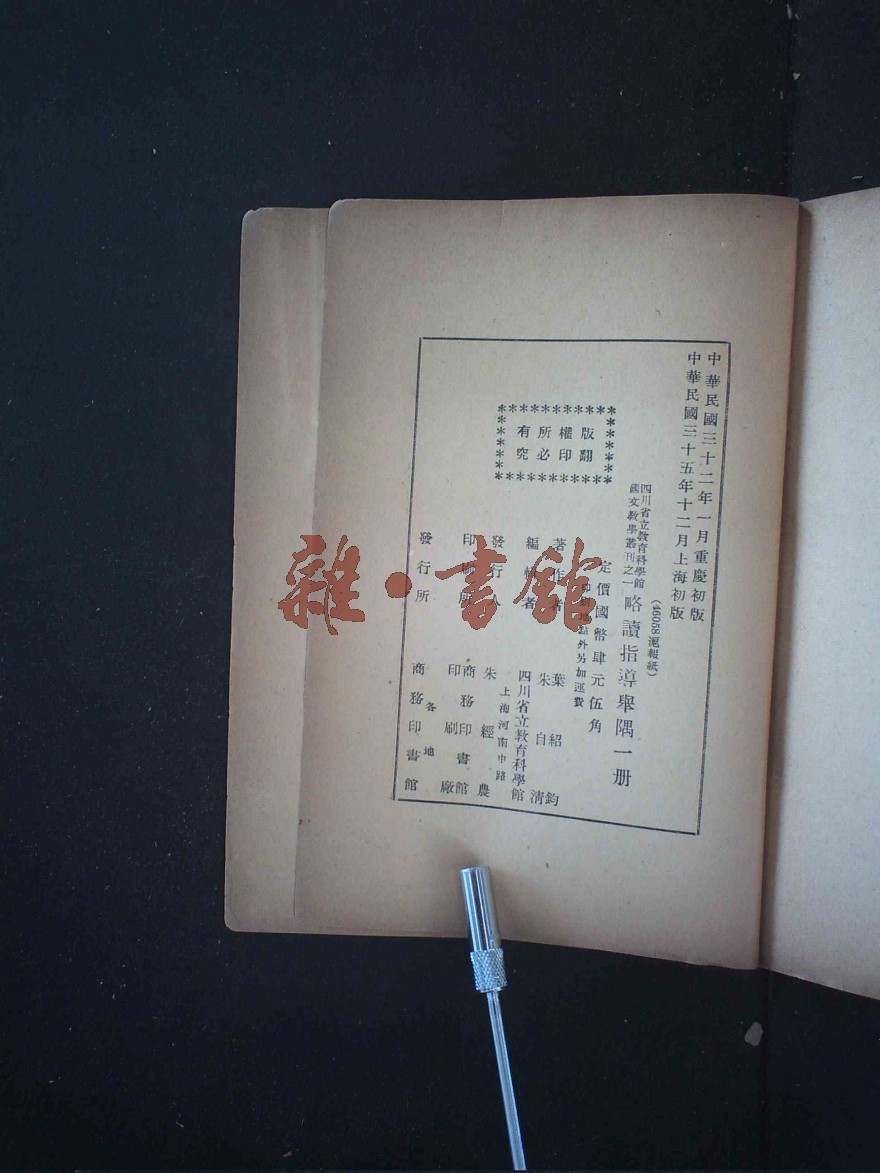 中華民國三十二年一月重慶初版
中華民國三十五年十二月上海初版
(46058滬報紙)
四川省立教育科學館
國文教學叢刊之一
略讀指導舉隅一册
定價國幣肆元伍角
印刷地點外另加運費
著作者 葉紹鈞 朱自清
編輯者 四川省立教育科學館
發行人 朱經農
上海河南中路
印刷所 商務印書館印刷廠
發行所 各地 商務印書館
版權所有
翻印必究
雜·書館